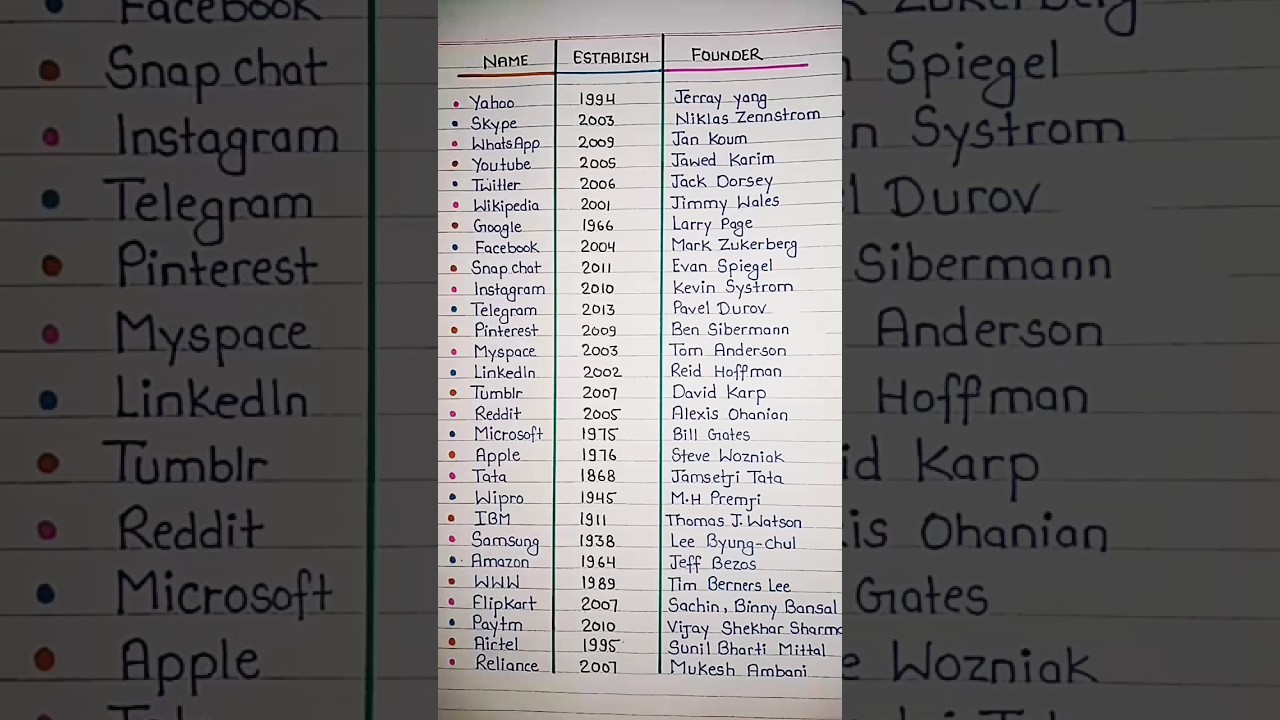 NAME ESTABIISH FOUNDER
Yahoo 1994 Jerray yang
Skype 2003 Niklas Zennstrom
WhatsApp 2009 Jan Koum
Youtube 2005 Jawed Karim
Twitter 2006 Jack Dorsey
Wikipedia 2001 Jimmy Wales
Google 1966 Larry Page
Facebook 2004 Mark Zukerberg
Snap chat 2011 Evan Spiegel
Instagram 2010 Kevin Systrom
Telegram 2013 Pavel Durov
Pinterest 2009 Ben Sibermann
Myspace 2003 Tom Anderson
LinkedIn 2002 Reid Hoffman
Tumblr 2007 David Karp
Reddit 2005 Alexis Ohanian
Microsoft 1975 Bill Gates
Apple 1976 Steve Wozniak
Tata 1868 Jamsetji Tata
Wipro 1945 M.H Premji
IBM 1911 Thomas J. Watson
Samsung 1938 Lee Byung-Chul
Amazon 1964 Jeff Bezos
WWW 1989 Tim Berners Lee
Flipkart 2007 Sachin, Binny Bansal
Paytm 2010 Vijay Shekhar Sharma
Airtel 1995 Sunil Bharti Mittal
Reliance 2007 Mukesh Ambani
Facebook Zukerberg
Snap chat Spiegel
Instagram Systrom
Telegram Durov
Pinterest Sibermann
Myspace Anderson
LinkedIn Hoffman
Tumblr Karp
Reddit Ohanian
Microsoft Gates
Apple Wozniak